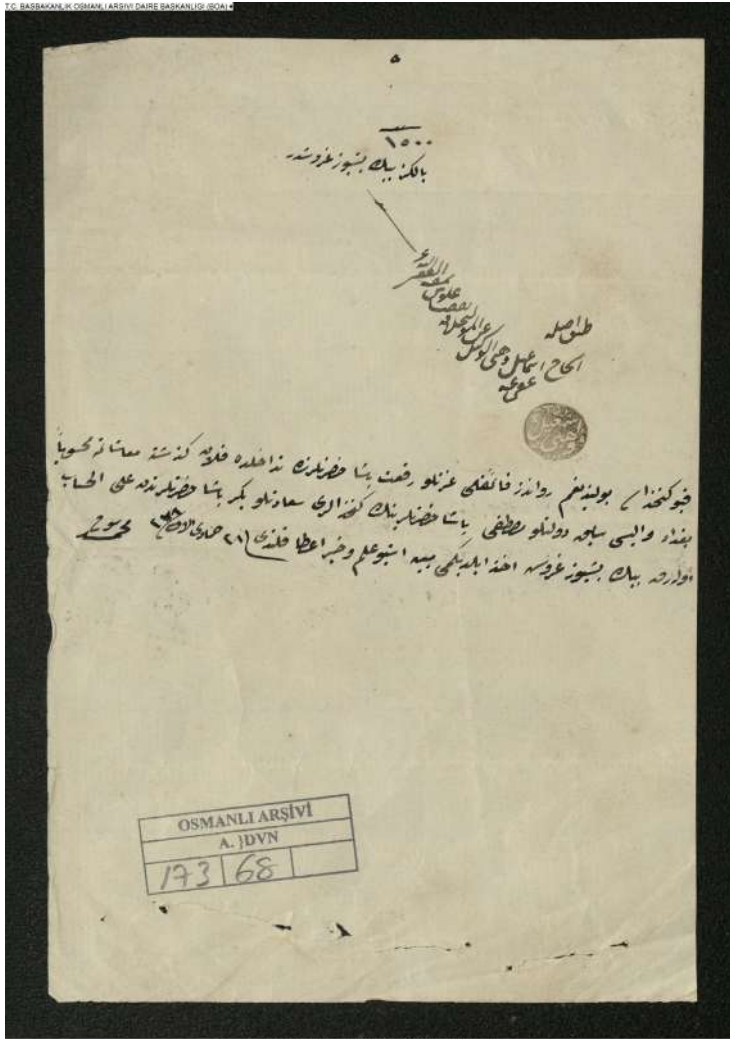 T.C. BAŞBAKANLIK OSMANLI ARŞİVİ DAİRE BAŞKANLIĞI (BOA)
١٥٠٠
يالكز بيك بشيوز غروشدر
طبق اصله
الحاج اسماعيل وهبى الوكيل
عفى عنه
قپوكتخداسى بولنديغم رواندز قائمقامى عزتلو رفعت پاشا حضرتلرينك تداخلده قلان كذشته معاشاتنه محسوباً
بغداد واليسى سابق دولتلو مصطفى پاشا حضرتلرينك كتخدالرى سعادتلو بكر پاشا حضرتلرندن على الحساب
اوله رق بيك بشيوز غروش اخذ ايلديكمى مبين اشبو علم وخبر اعطا قلندى فى ٢١ جمادى الاخر
OSMANLI ARŞİVİ
A. }DVN
173 68